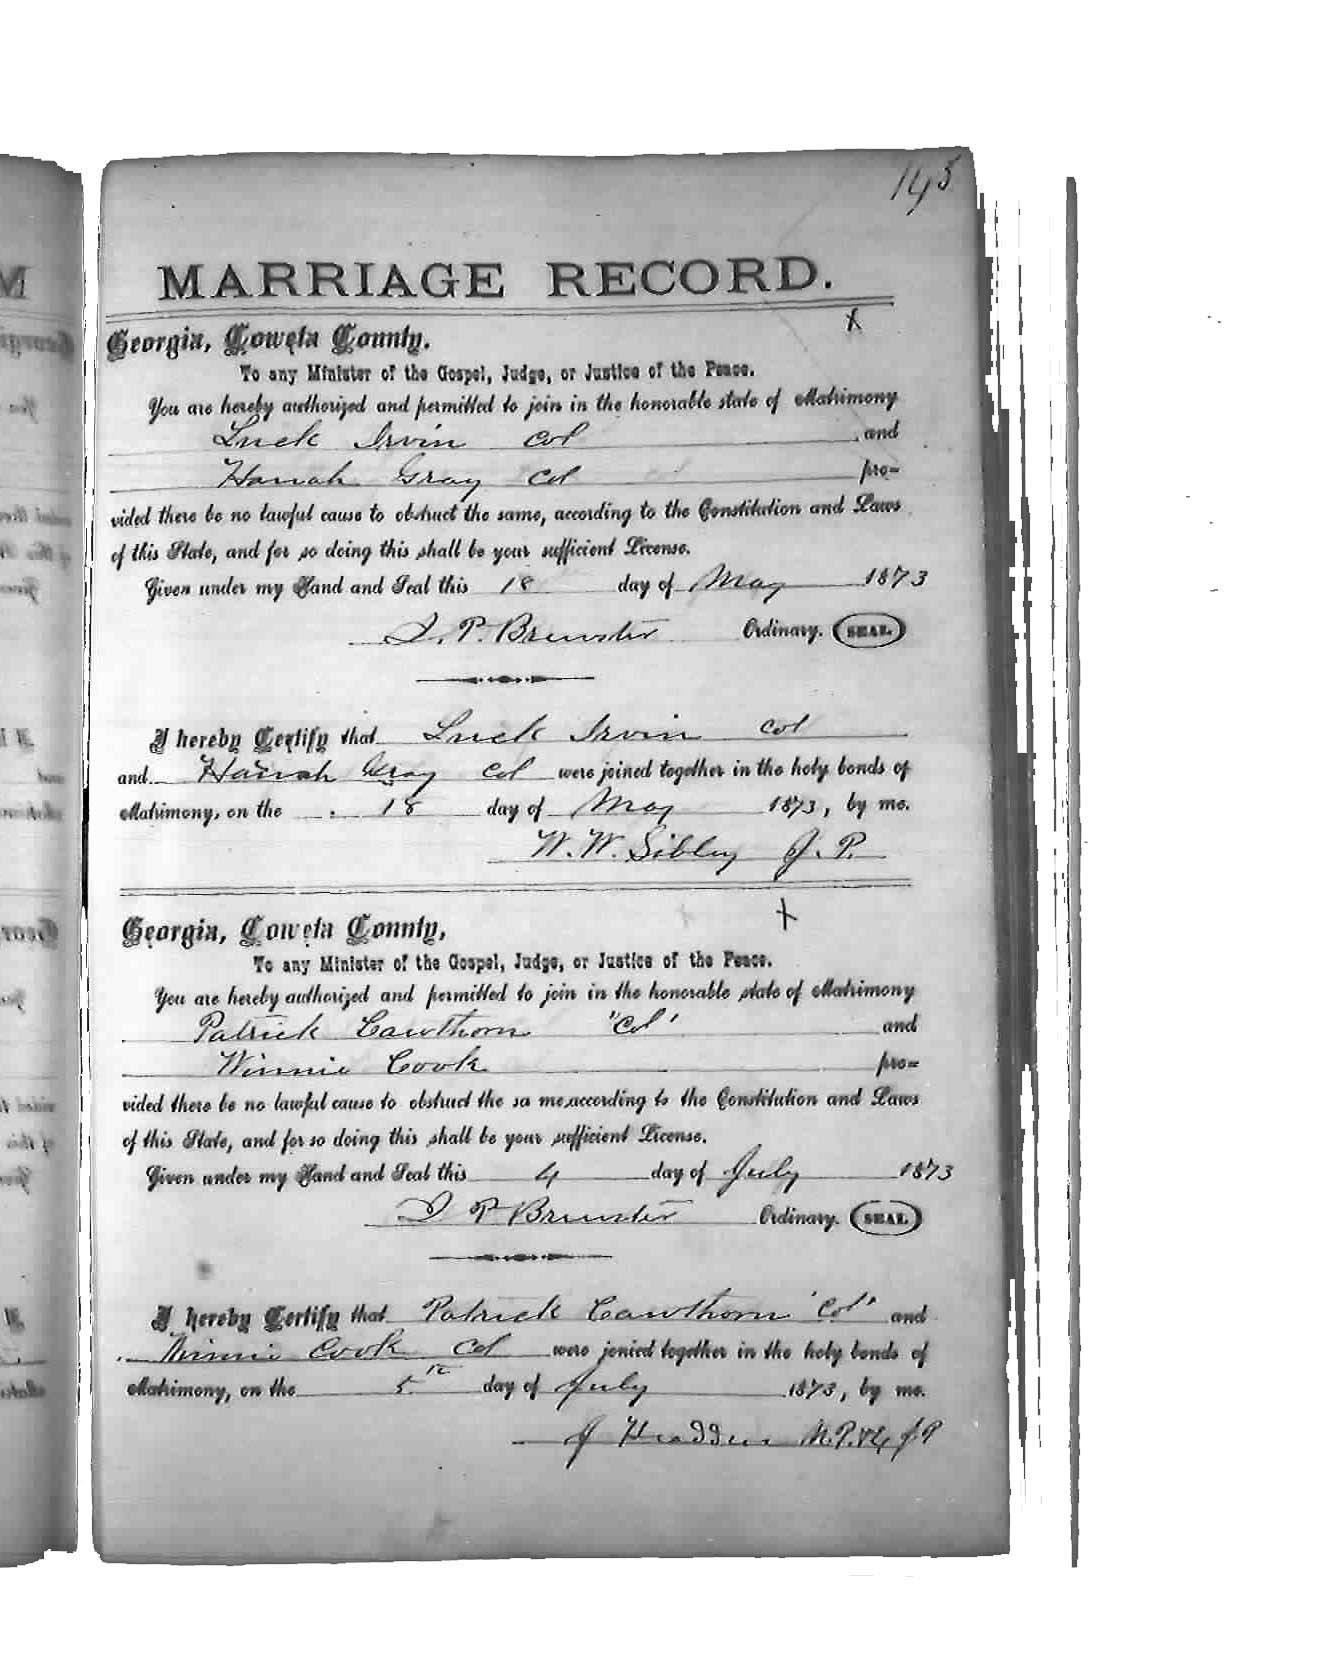 145
MARRIAGE RECORD.
X
Georgia, Coweta County.
To any Minister of the Gospel, Judge, or Justice of the Peace.
You are hereby authorized and permitted to join in the honorable state of Matrimony
Luck Irvin col and
Hanah Gray col pro=
vided there be no lawful cause to obstruct the same, according to the Constitution and Laws
of this State, and for so doing this shall be your sufficient License.
Given under my Hand and Seal this 18 day of May 1873
I. P. Brewster Ordinary. SEAL
I hereby Certify that Luck Irvin col
and Hanah Gray col were joined together in the holy bonds of
Matrimony, on the 18 day of May 1873, by me.
W. W. Sibley J. P.
X
Georgia, Coweta County,
To any Minister of the Gospel, Judge, or Justice of the Peace.
You are hereby authorized and permitted to join in the honorable state of Matrimony
Patrick Cawthorn "Col' and
Winnie Cook pro=
vided there be no lawful cause to obstruct the sa me,according to the Constitution and Laws
of this State, and for so doing this shall be your sufficient License.
Given under my Hand and Seal this 4 day of July 1873
I P Brewster Ordinary. SEAL
I hereby Certify that Patrick Cawthorn 'Col' and
Winnie Cook Col were jonied together in the holy bonds of
Matrimony, on the 5th day of July 1873, by me.
J N.P. J P